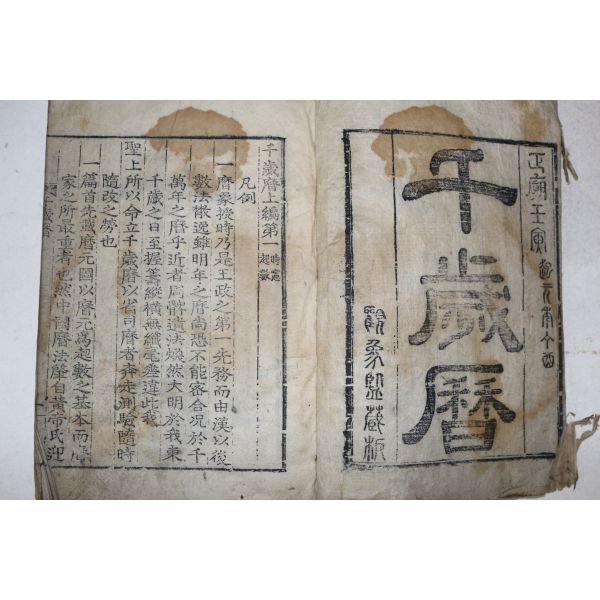 正廟壬寅
千歲曆
觀象監藏板
千歲曆上編第一 時憲起數
凡例
一曆象授時乃是王政之第一先務而由漢以後
數法散逸雖明年之曆尚恐不能密合况於千
萬年之曆乎近者周髀遺法煥然大明於我東
千歲之日至握籌縱橫無纖毫差違此我
聖上所以命立千歲曆以省司曆者奔走測驗隨時
隨改之勞也
一篇首先載曆元圖以曆元爲起數之基本而曆
家之所最重者也然中國曆法肇自黃帝氏迎